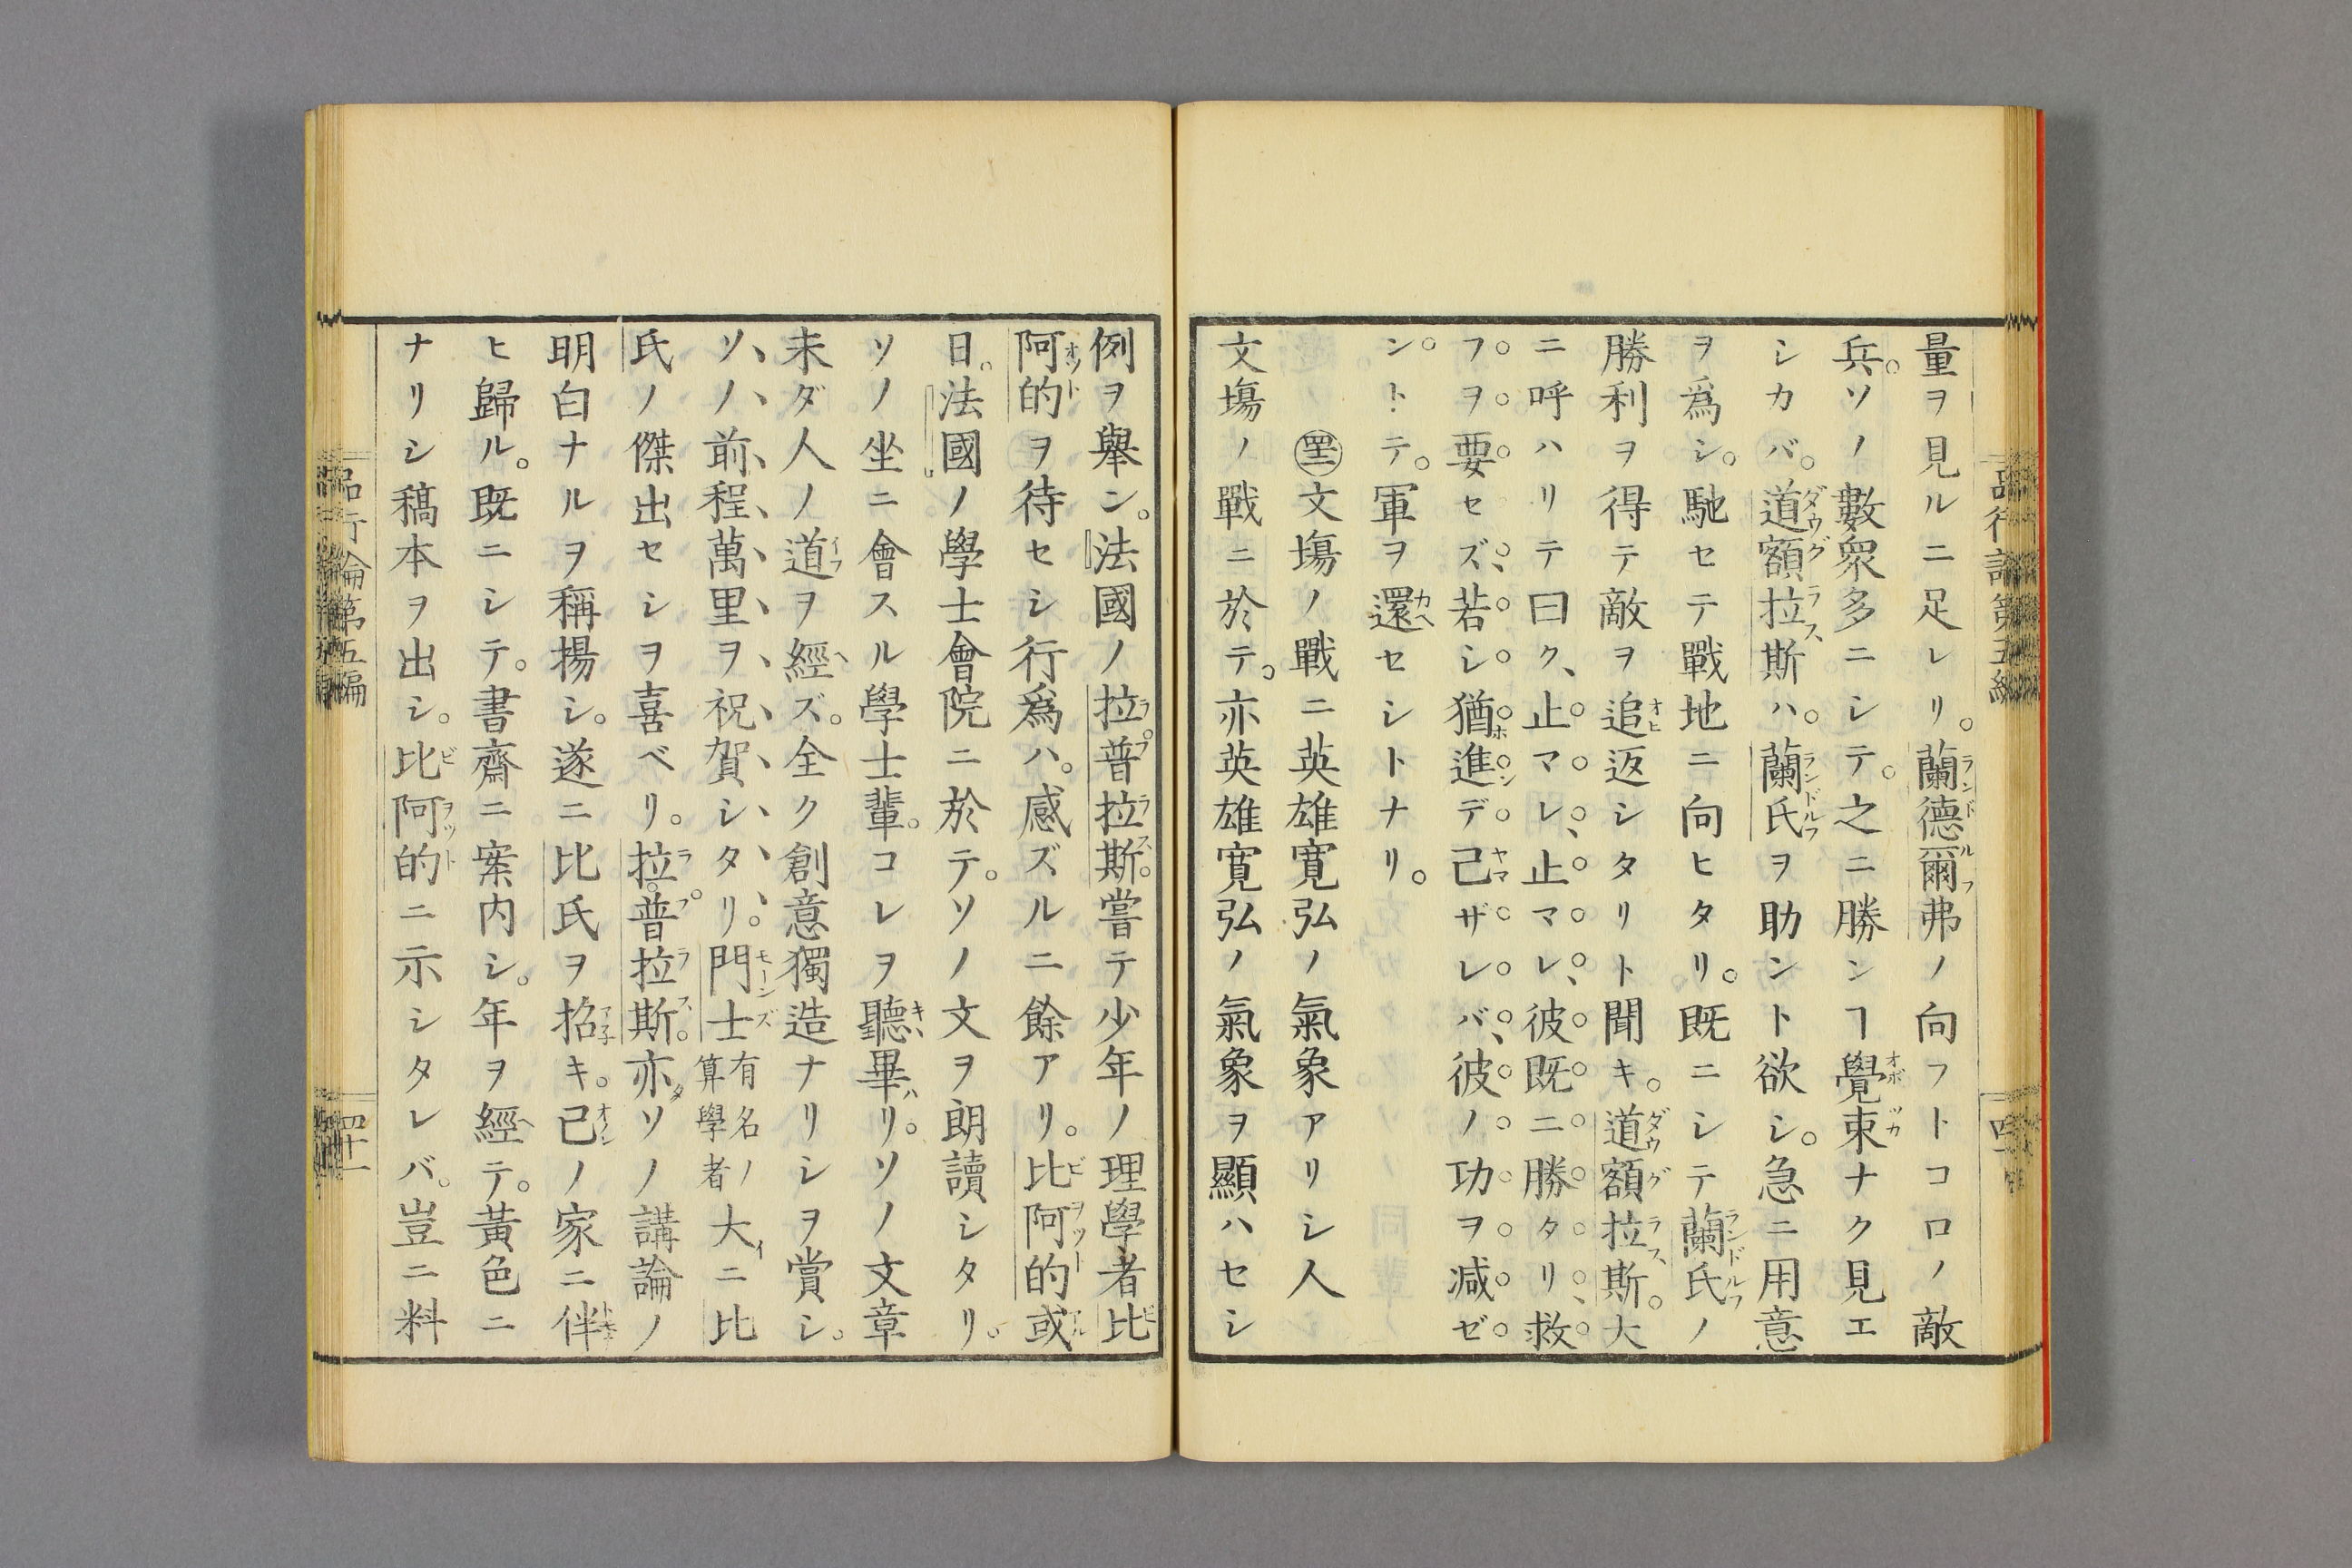 量ヲ見ルニ足レリ。蘭德爾弗ノ向フトコロノ敵
兵。ソノ數衆多ニシテ。之ニ勝ンヿ覺束ナク見エ
シカバ。道額拉斯ハ。蘭氏ヲ助ント欲シ。急ニ用意
ヲ爲シ。馳セテ戰地ニ向ヒタリ。既ニシテ蘭氏ノ
勝利ヲ得テ敵ヲ追返シタリト聞キ。道額拉斯。大
ニ呼ハリテ曰ク、止マレ、止マレ、彼既ニ勝タリ、救
フヲ要セズ、若シ猶進デ已ザレバ、彼ノ功ヲ减ゼ
ントテ。軍ヲ還セシトナリ。
文塲ノ戰ニ英雄寛弘ノ氣象アリシ人
文塲ノ戰ニ於テ。亦英雄寛弘ノ氣象ヲ顯ハセシ
例ヲ舉ン。法國ノ拉普拉斯。嘗テ少年ノ理學者比
阿的ヲ待セシ行爲ハ。感ズルニ餘アリ。比阿的或
日。法國ノ學士會院ニ於テ。ソノ文ヲ朗讀シタリ。
ソノ坐ニ會スル學士輩。コレヲ聽畢リ。ソノ文章
未ダ人ノ道ヲ經ズ。全ク創意獨造ナリシヲ賞シ。
ソノ前程萬里ヲ祝賀シタリ。門士有名ノ算學者大ニ比
氏ノ傑出セシヲ喜ベリ。拉普拉斯。亦ソノ講論ノ
明白ナルヲ稱揚シ。遂ニ比氏ヲ招キ。己ノ家ニ伴
ヒ歸ル。既ニシテ。書齋ニ案内シ。年ヲ經テ。黃色ニ
ナリシ稿本ヲ出シ。比阿的ニ示シタレバ。豈ニ料
品行論第五編
四十一